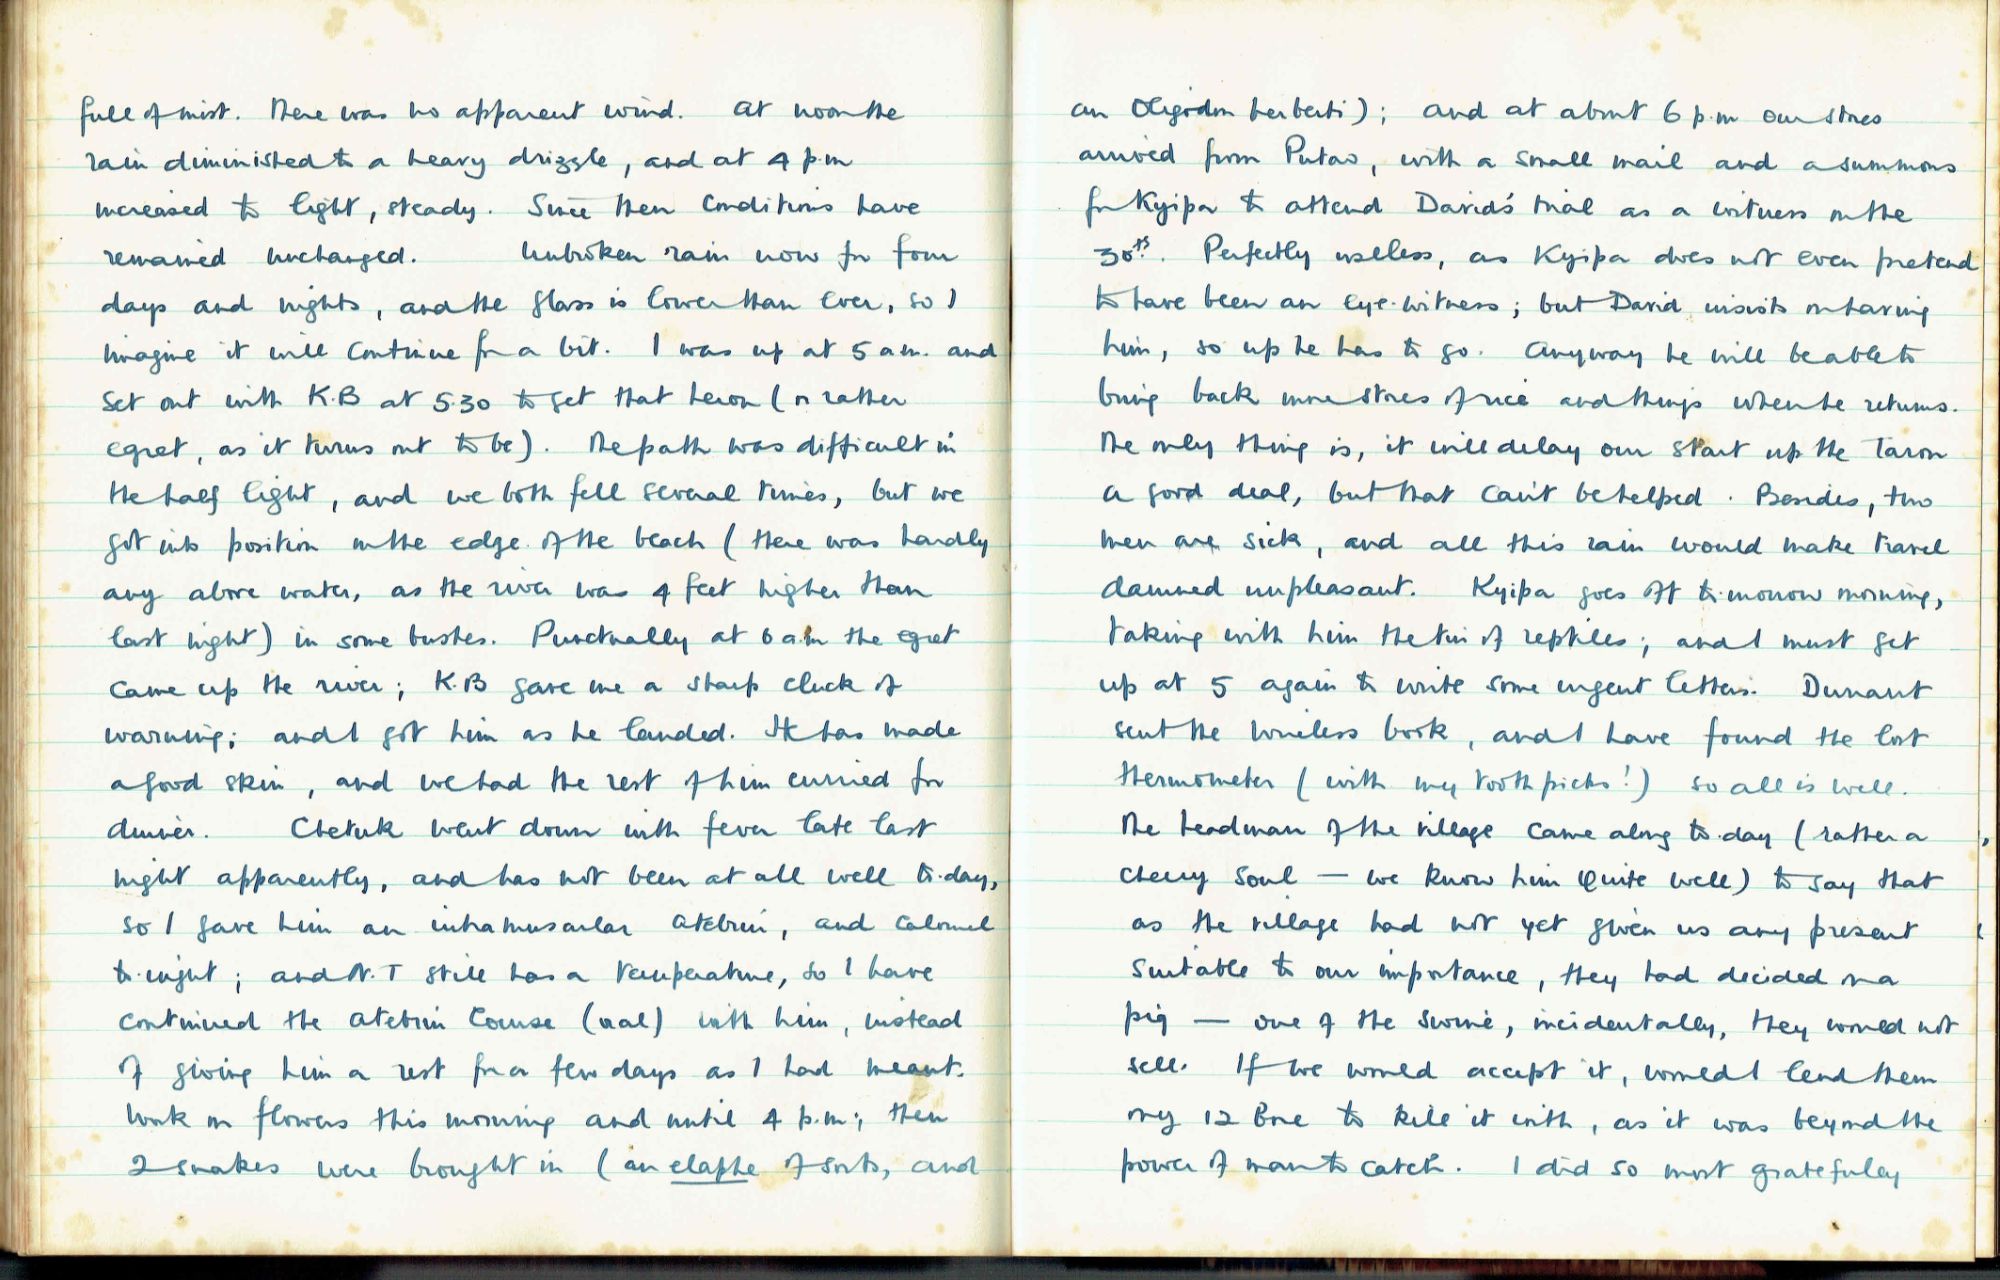 full of mist. There was no apparent wind. At noon the
rain diminished to a heavy drizzle, and at 4 p.m
increased to light, steady. Since then conditions have
remained unchanged. Unbroken rain now for four
days and nights, and the glass is lower than ever, so I
imagine it will continue for a bit. I was up at 5 a.m. and
set out with K.B at 5.30 to get that heron (or rather
egret, as it turns out to be). The path was difficult in
the half light, and we both fell several times, but we
got into position on the edge of the beach (there was hardly
any above water, as the river was 4 feet higher than
last night) in some bushes. Punctually at 6 a.m the egret
came up the river; K.B gave me a sharp cluck of
warning; and I got him as he landed. He has made
a good skin, and we had the rest of him curried for
dinner. Chetuk went down with fever late last
night apparently, and has not been at all well to-day,
so I gave him an intramuscular atebrin, and calomel
to-night; and N.T still has a temperature, so I have
continued the atebrin course (oral) with him, instead
of giving him a rest for a few days as I had meant.
Work on flowers this morning and until 4 p.m; then
2 snakes were brought in (an elaphe of sorts, and
an Oligodon herberti); and at about 6 p.m our stores
arrived from Putao, with a small mail and a summons
for Kyipa to attend David's trial as a witness on the
30th. Perfectly useless, as Kyipa does not even pretend
to have been an eye-witness; but David insists on having
him, so up he has to go. Anyway he will be able to
bring back more stores of rice and things when he returns.
The only thing is, it will delay our start up the Taron
a good deal, but that can't be helped. Besides, two
men are sick, and all this rain would make travel
damned unpleasant. Kyipa goes off to-morrow morning,
taking with him the tin of reptiles; and I must get
up at 5 again to write some urgent letters. Durrant
sent the wireless book, and I have found the lost
thermometer (with my toothpicks!) so all is well.
The headman of the village came along to-day (rather a
cheery soul — we know him quite well) to say that
as the village had not yet given us any present
suitable to our importance, they had decided on a
pig — one of the swine, incidentally, they would not
sell. If we would accept it, would I lend them
my 12 bore to kill it with, as it was beyond the
power of man to catch. I did so most gratefully